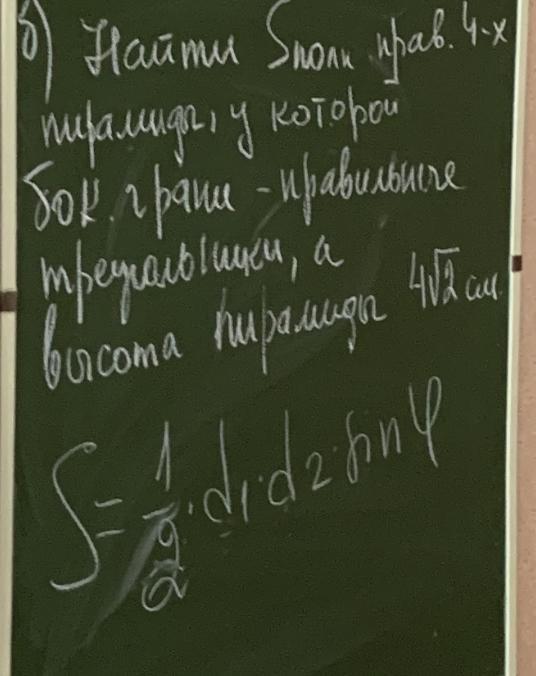 б) Найти Sполн прав. 4-х
пирамиды, у которой
бок. грани - правильные
треугольники, а
высота пирамиды 4√2 см.
S = 1/2 · d₁ · d₂ · sin φ